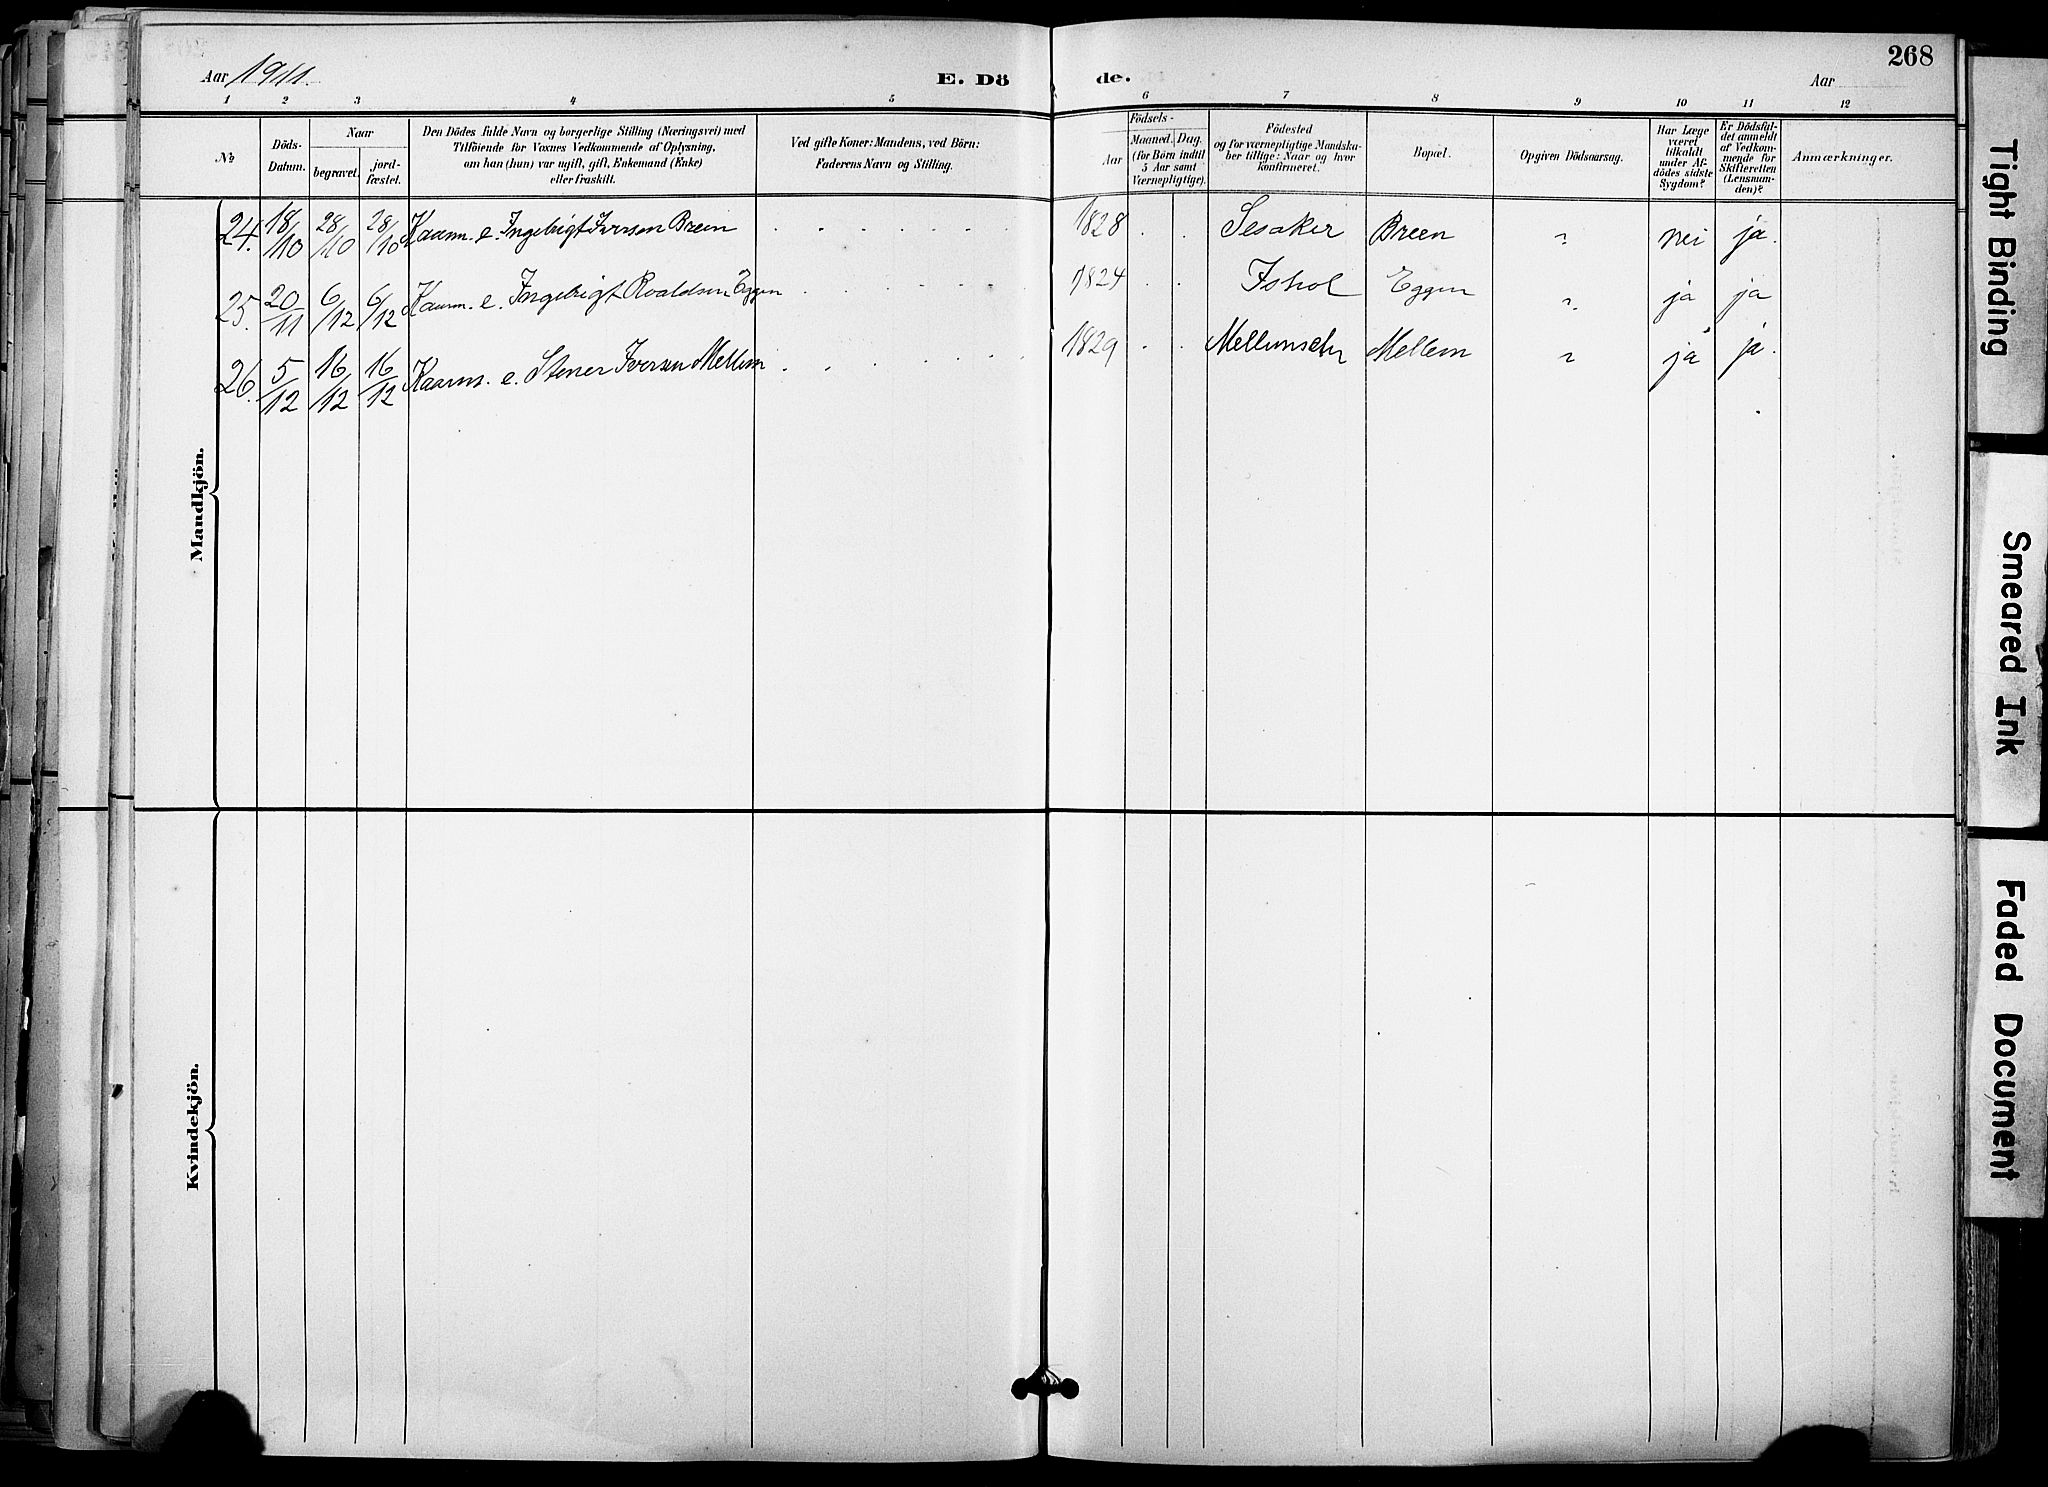 268
Aar 1911.
E. Dö
de.
Aar
1 2 3 4 5 6 7 8 9 10 11 12
№
Döds-
Datum.
Naar
begravet.
jord-
fæstet.
Den Dödes fulde Navn og borgerlige Stilling (Næringsvei) med
Tilföiende for Voxnes Vedkommende af Oplysning,
om han (hun) var ugift, gift, Enkemand (Enke)
eller fraskilt.
Ved gifte Koner: Mandens, ved Börn:
Faderens Navn og Stilling.
Födsels-
Aar
Maaned.
Dag.
(for Börn indtil
5 Aar samt
Værnepligtige).
Födested
og for værnepligtige Mandska-
ber tillige: Naar og hvor
konfirmeret.
Bopæl.
Opgiven Dödsaarsag.
Har Læge
været
tilkaldt
under Af-
dödes sidste
Sygdom?
Er Dödsfal-
det anmeldt
af Vedkom-
mende for
Skifteretten
(Lensman-
den)?
Anmærkninger.
24. 18/10 28/10 28/10 Kaarm. e. Ingebrigt Iversen Breen 1828 Sesaker Breen " nei ja.
25. 20/11 6/12 6/12 Kaarm. e. Ingebrigt Roaldsen Eggen 1824 Ishol Eggen " ja ja
26. 5/12 16/12 16/12 Kaarm. e. Stener Iversen Mellem 1829 Mellem " ja ja.
Mandkjön.
Kvindekjön.
Tight Binding
Smeared Ink
Faded Document